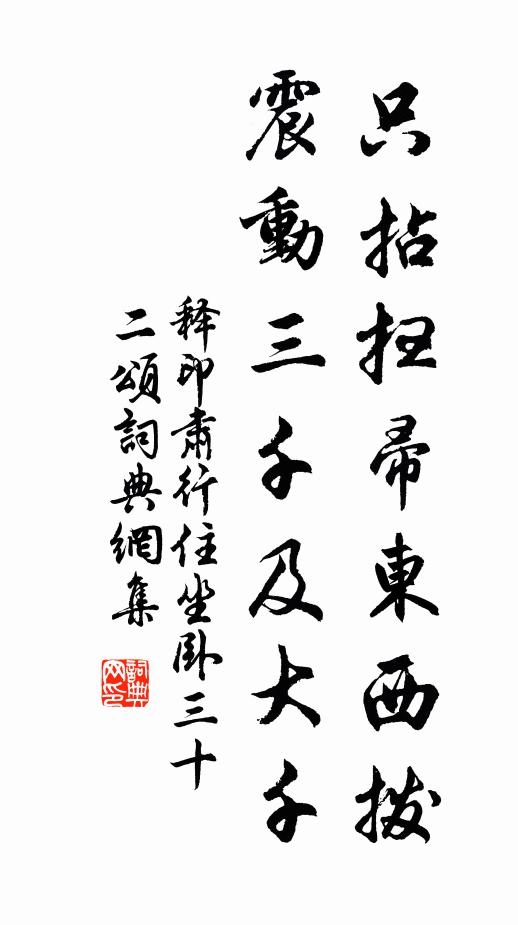 只拈扫帚東西撥
震動三千及大千
释印肅行住坐卧三十
二頌詞典網集
詞典网印